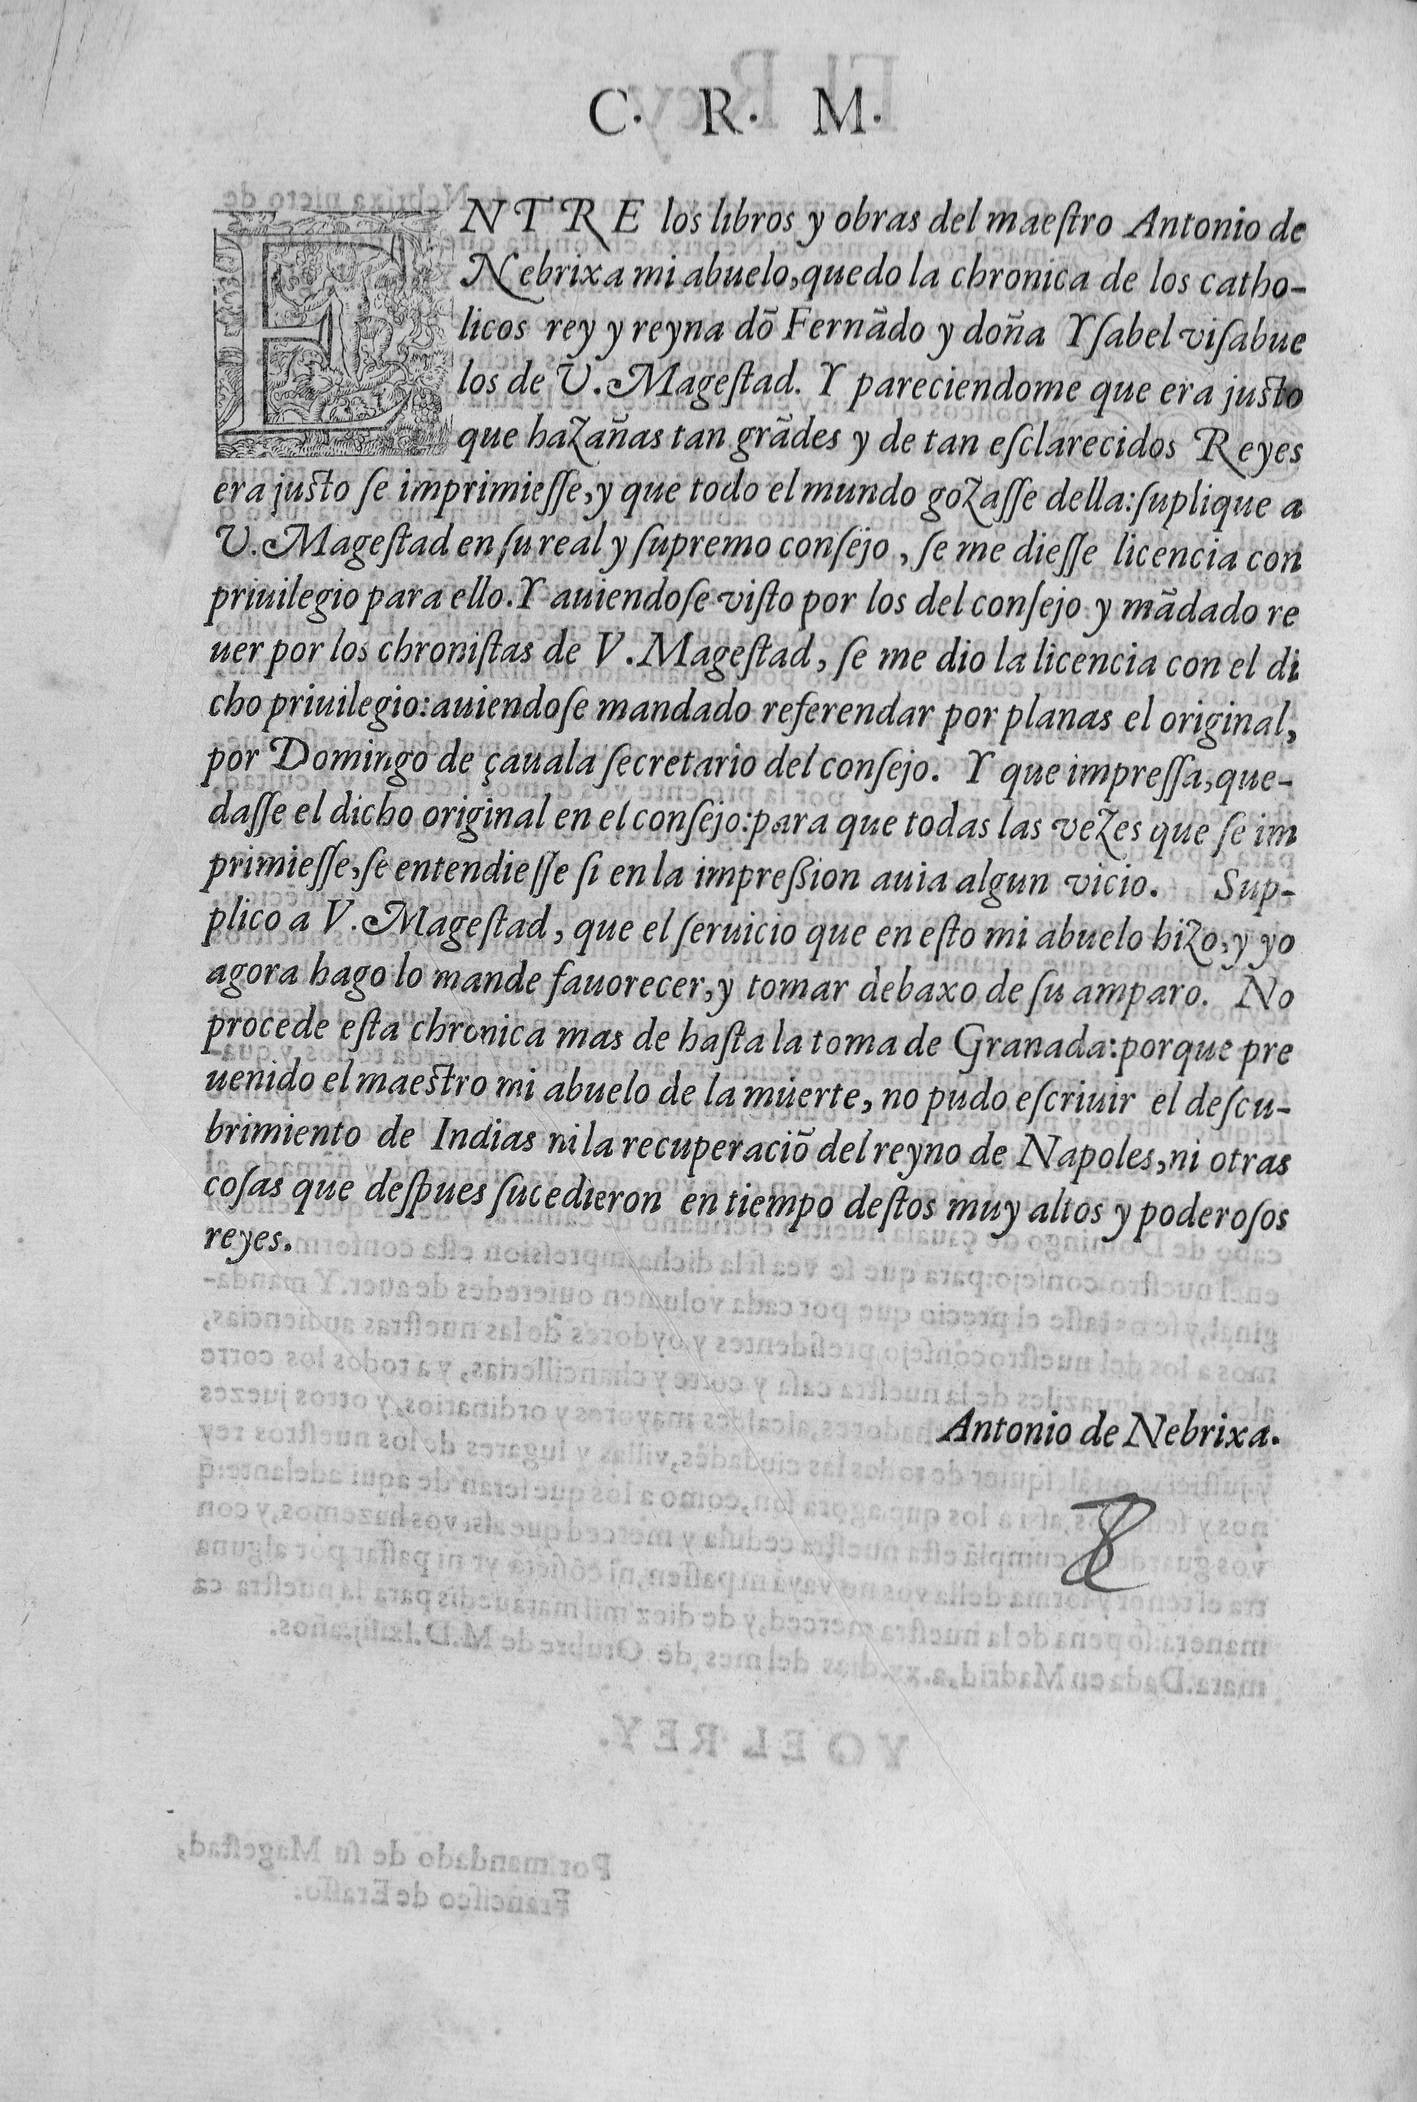 C. R. M.
ENTRE los libros y obras del maeſtro Antonio de
Nebrixa mi abuelo, quedo la chronica de los catho-
licos rey y reyna dõ Fernãdo y doña Yſabel viſabue
los de V. Mageſtad. Y pareciendome que era juſto
que hazañas tan grãdes y de tan eſclarecidos Reyes
era juſto ſe imprimieſſe, y que todo el mundo gozaſſe della: ſuplique a
V. Mageſtad en ſu real y ſupremo conſejo, ſe me dieſſe licencia con
priuilegio para ello. Y auiendoſe viſto por los del conſejo y mãdado re
uer por los chroniſtas de V. Mageſtad, ſe me dio la licencia con el di
cho priuilegio: auiendoſe mandado referendar por planas el original,
por Domingo de çauala ſecretario del conſejo. Y que impreſſa, que-
daſſe el dicho original en el conſejo: para que todas las vezes que ſe im
primieſſe, ſe entendieſſe ſi en la impreßion auia algun vicio. Sup-
plico a V. Mageſtad, que el ſeruicio que en eſto mi abuelo hizo, y yo
agora hago lo mande fauorecer, y tomar debaxo de ſu amparo. No
procede eſta chronica mas de haſta la toma de Granada: porque pre
uenido el maeſtro mi abuelo de la muerte, no pudo eſcriuir el deſcu-
brimiento de Indias ni la recuperaciõ del reyno de Napoles, ni otras
coſas que deſpues ſucedieron en tiempo deſtos muy altos y poderoſos
reyes.
Antonio de Nebrixa.